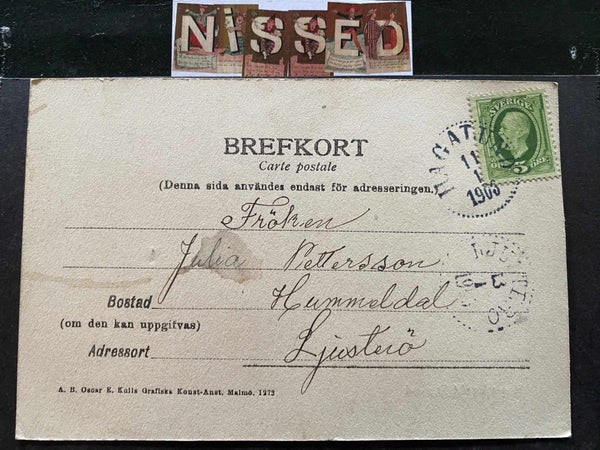 NiSSED
BREFKORT
Carte postale
(Denna sida användes endast för adresseringen.)
SVERIGE
5 ÖRE
1903
Fröken
Julia Pettersson
Bostad Hummeldal
(om den kan uppgifvas)
Adressort Ljusterö
A. B. Oscar E. Kulls Grafiska Konst-Anst. Malmö. 1272